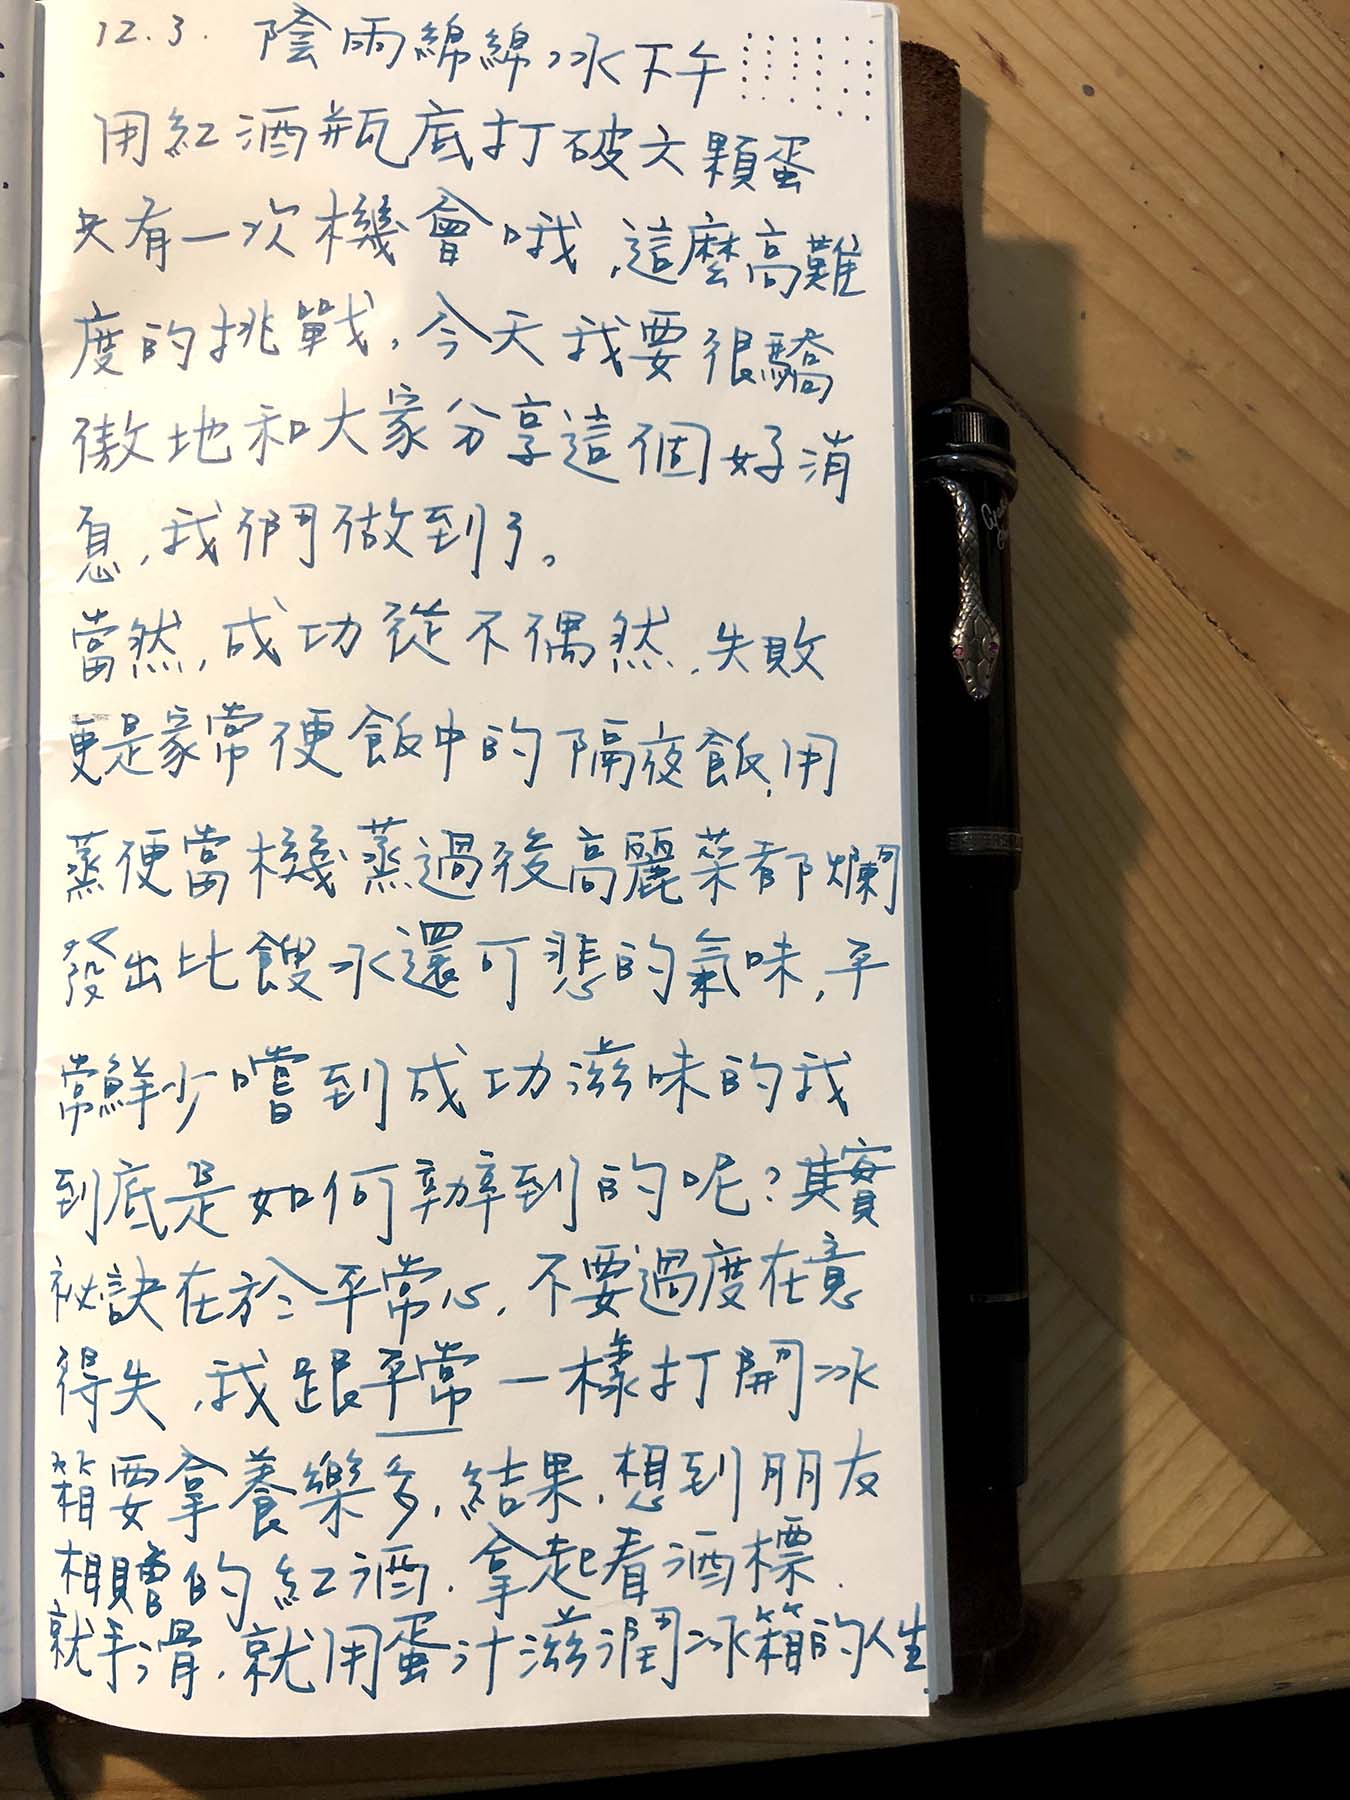 12.3. 陰雨綿綿冰下午
用紅酒瓶底打破六顆蛋
只有一次機會哦,這麼高難
度的挑戰,今天我要很驕
傲地和大家分享這個好消
息,我們做到了。
當然,成功從不偶然,失敗
更是家常便飯中的隔夜飯,用
蒸便當機蒸過後高麗菜都爛
發出比餿水還可悲的氣味,平
常鮮少嚐到成功滋味的我
到底是如何辦到的呢?其實
祕訣在於平常心,不要過度在意
得失,我跟平常一樣打開冰
箱要拿養樂多,結果,想到朋友
相贈的紅酒,拿起看酒標,
就手滑,就用蛋汁滋潤冰箱的人生